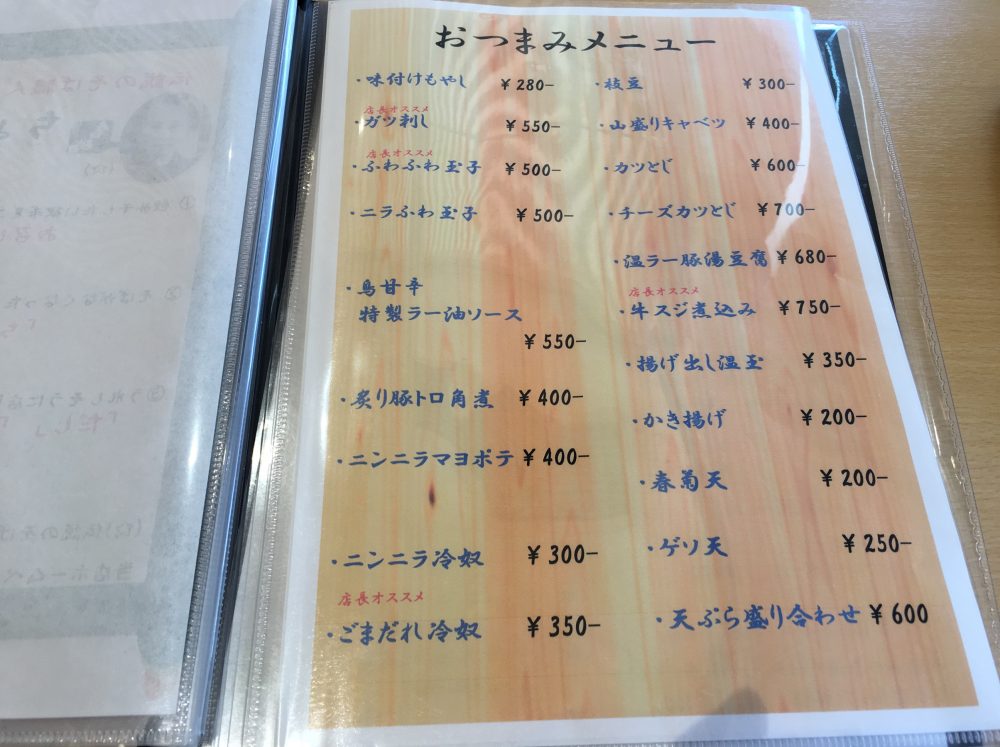 おつまみメニュー
・味付けもやし ¥280-
店長オススメ
・ガツ刺し ¥550-
店長オススメ
・ふわふわ玉子 ¥500-
・ニラふわ玉子 ¥500-
・鳥甘辛
特製ラー油ソース
¥550-
・炙り豚トロ角煮 ¥400-
・ニンニラマヨポテ ¥400-
・ニンニラ冷奴 ¥300-
店長オススメ
・ごまだれ冷奴 ¥350-
・枝豆 ¥300-
・山盛りキャベツ ¥400-
・カツとじ ¥600-
・チーズカツとじ ¥700-
・温ラー豚湯豆腐 ¥680-
店長オススメ
・牛スジ煮込み ¥750-
・揚げ出し温玉 ¥350-
・かき揚げ ¥200-
・春菊天 ¥200-
・ゲソ天 ¥250-
・天ぷら盛り合わせ ¥600